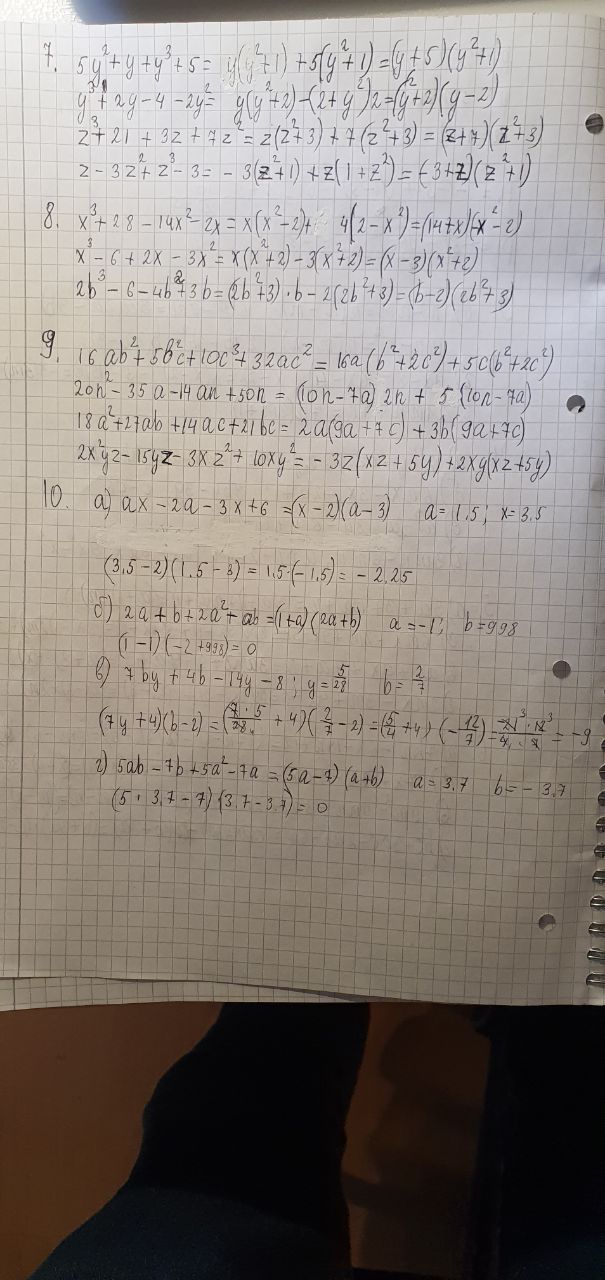 7. 5y²+y+y³+5= y(y²+1)+5(y²+1)=(y+5)(y²+1)
y³+2y-4-2y²= y(y²+2)-(2+y²)2=(y²+2)(y-2)
z³+21+3z+7z²=z(z²+3)+7(z²+3)=(z+7)(z²+3)
z-3z²+z³-3=-3(z²+1)+z(1+z²)=(-3+z)(z²+1)
8. x³+28-14x²-2x=x(x²-2)+ 4(2-x²)=(14+x)(-x²-2)
x³-6+2x-3x²=x(x²+2)-3(x²+2)=(x-3)(x²+2)
2b³-6-4b²+3b=(2b²+3)·b-2(2b²+3)=(b-2)(2b²+3)
9. 16ab²+5b²c+10c³+32ac²=16a(b²+2c²)+5c(b²+2c²)
20n²-35a-14an+50n=(10n-7a)2n+5(10n-7a)
18a²+27ab+14ac+21bc=2a(9a+7c)+3b(9a+7c)
2x²yz-15yz-3xz²+10xy²=-3z(xz+5y)+2xy(xz+5y)
10. а) ax-2a-3x+6=(x-2)(a-3) a=1.5; x=3.5
(3.5-2)(1.5-3)=1.5·(-1.5)=-2.25
б) 2a+b+2a²+ab=(1+a)(2a+b) a=-1; b=998
(1-1)(-2+998)=0
в) 7by+4b-14y-8; y=5/28 b=2/7
(7y+4)(b-2)=(7·5/28+4)(2/7-2)=(5/4+4)(-12/7)=-21³·12³/4·7=-9
г) 5ab-7b+5a²-7a=(5a-7)(a+b) a=3.7 b=-3.7
(5·3.7-7)(3.7-3.7)=0